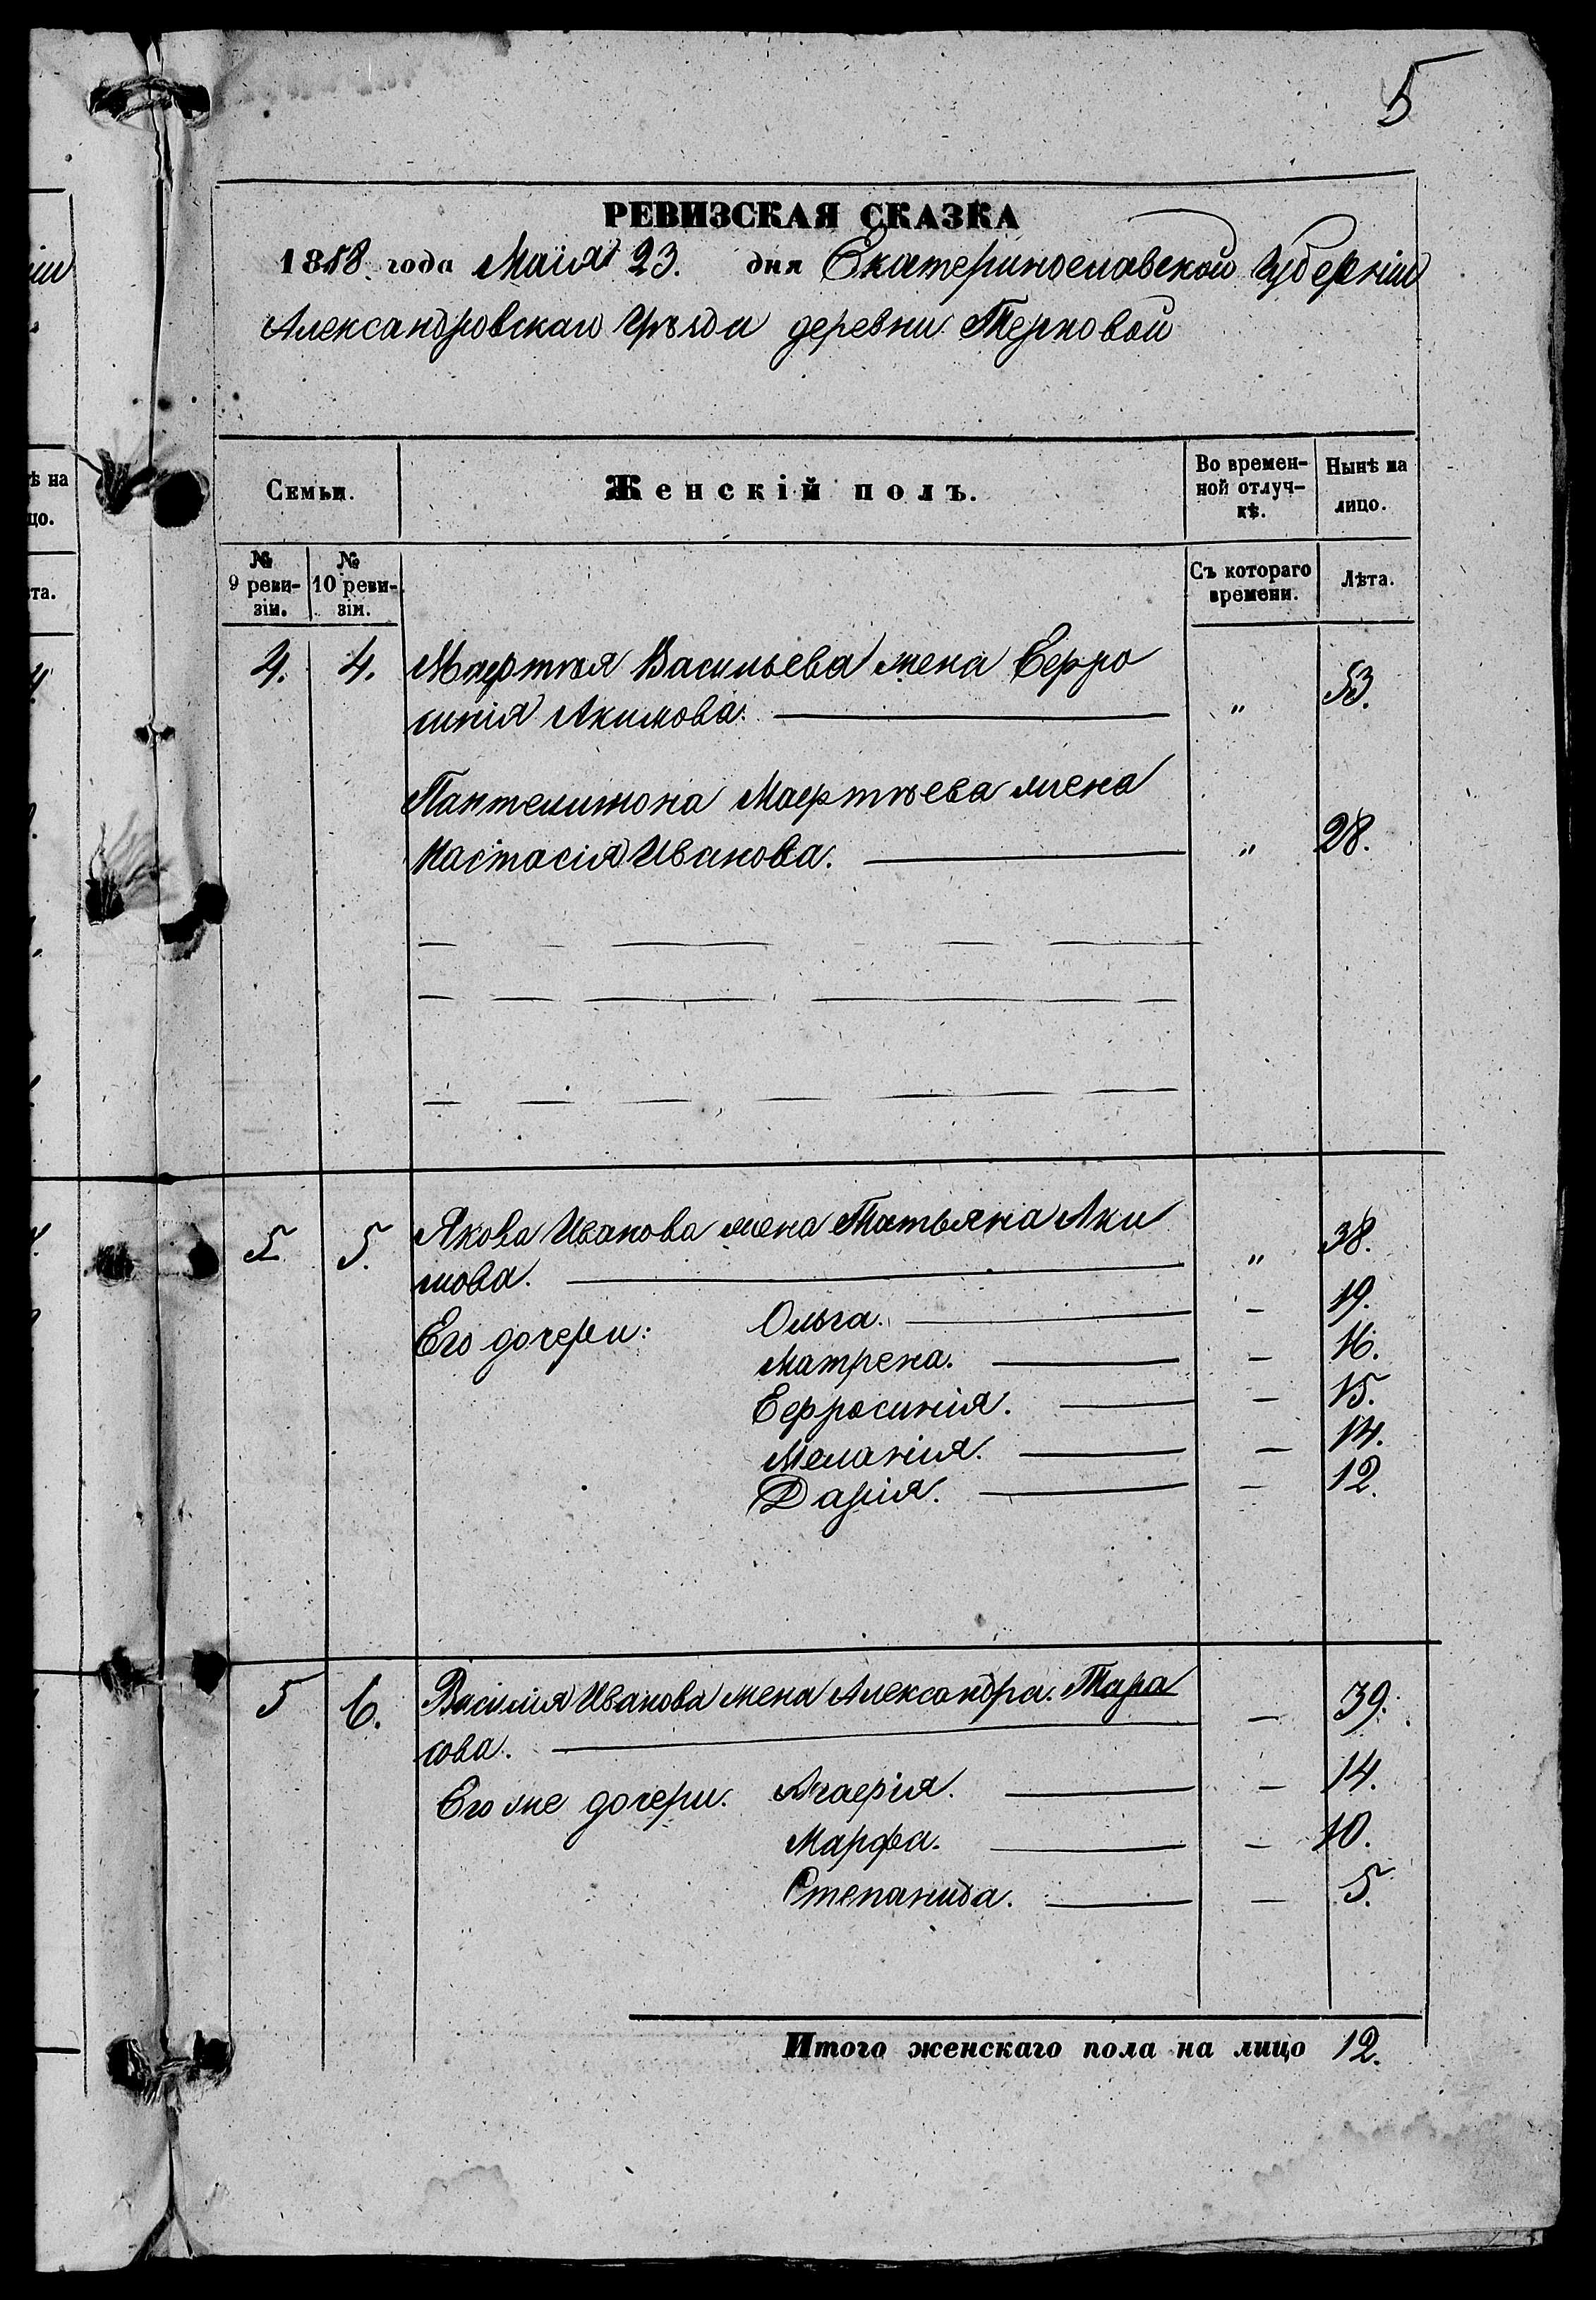 5
РЕВИЗСКАЯ СКАЗКА
1858 года Маія 23. дня Екатеринославской Губерніи
Александровскаго Уѣзда деревни Терновой
Семьи.
Женскій полъ.
Во времен-
ной отлуч-
кѣ.
Нынѣ на
лицо.
№
9 реви-
зіи.
№
10 реви-
зіи.
Съ котораго
времени.
Лѣта.
4. 4. Матфѣя Васильева жена Ефро
синія Акимова. " 53.
Пантелимона Матфѣева жена
Настасія Иванова. " 28.
5 5. Якова Иванова жена Татьяна Аки
мова. " 38.
Его дочери: Ольга. — 19.
Матрена. — 16.
Ефросинія. — 15.
Меланія. — 14.
Дарія. — 12.
5 6. Василія Иванова жена Александра Тара
сова. — 39.
Его же дочери. Агафія. — 14.
Марфа. — 10.
Степанида. — 5.
Итого женскаго пола на лицо 12.